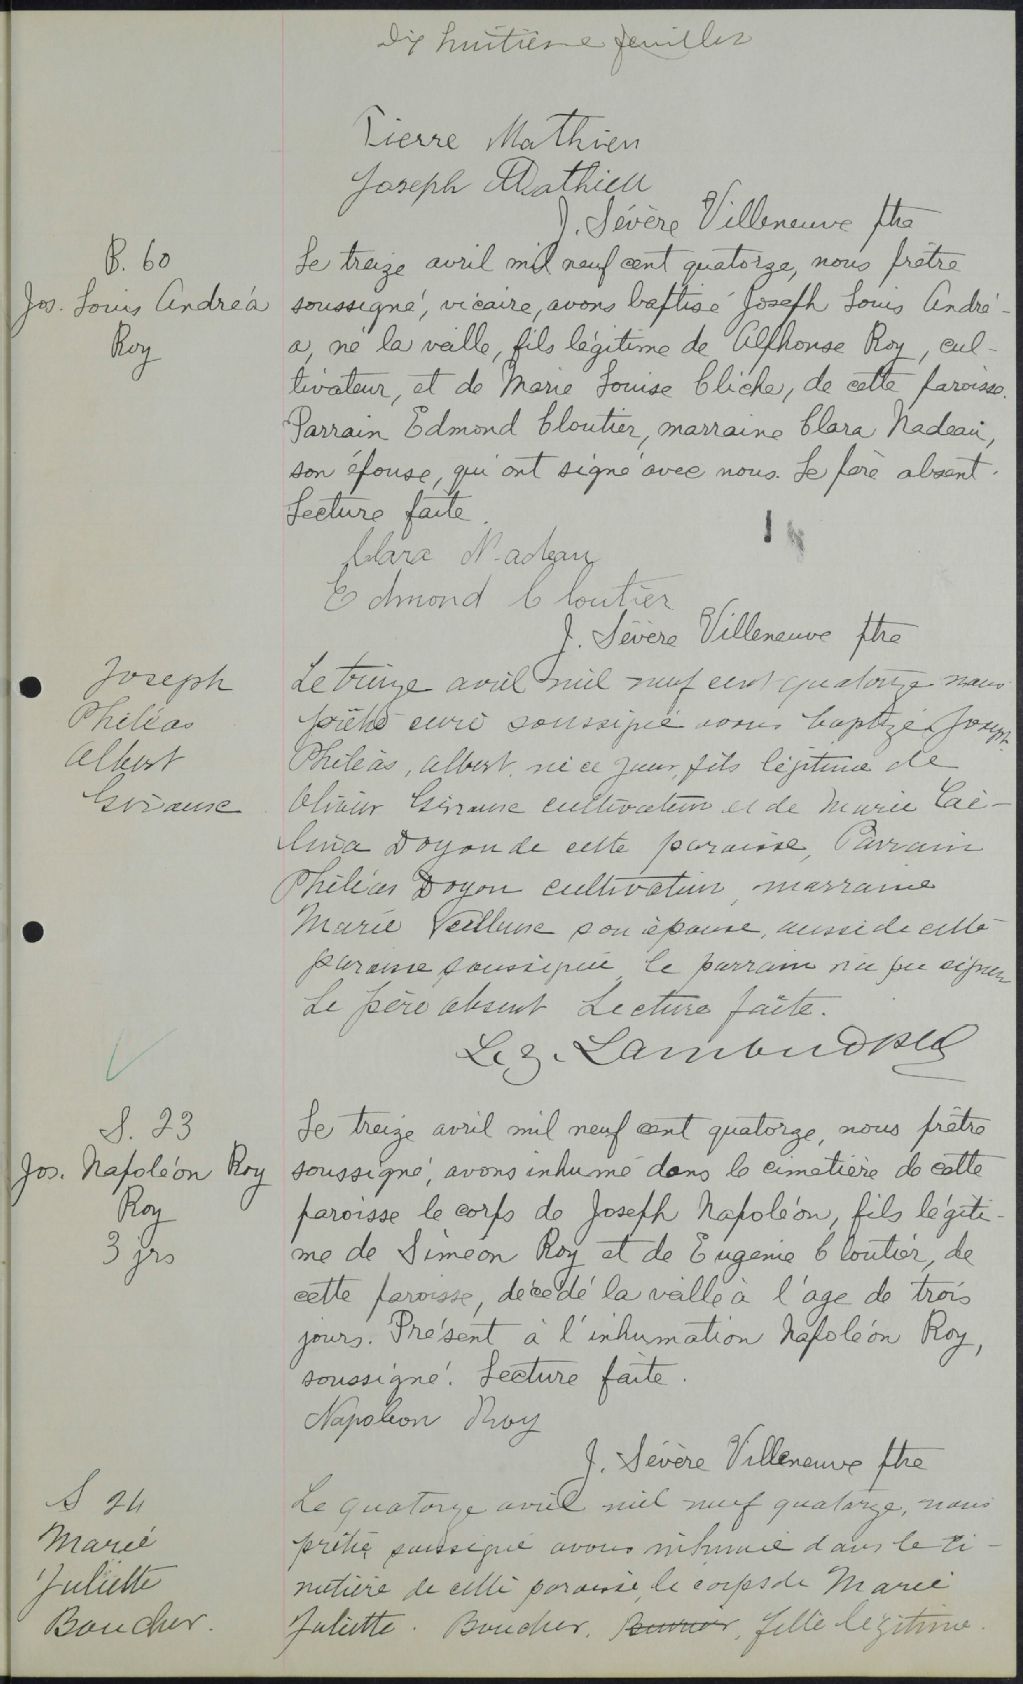 Dix huitième feuillet
Pierre Mathieu
Joseph Mathieu
J. Sévère Villeneuve ptre
B. 60
Jos. Louis Andréa
Roy
Le treize avril mil neuf cent quatorze, nous prêtre
soussigné, vicaire, avons baptisé Joseph Louis André-
a, né la veille, fils légitime de Alphonse Roy, cul-
tivateur, et de Marie Louise Cliche, de cette paroisse.
Parrain Edmond Cloutier, marraine Clara Nadeau,
son épouse, qui ont signé avec nous. Le père absent.
Lecture faite.
Clara Nadeau
Edmond Cloutier
J. Sévère Villeneuve ptre
Joseph
Philéas
Albert
Giroux
Le treize avril mil neuf cent quatorze nous
prêtre curé soussigné avons baptizé Joseph
Philéas, Albert, né ce jour, fils légitime de
Olivier cultivateur et de Marie Cé-
lina Doyon de cette paroisse, Parrain
Philéas Doyon cultivateur, marraine
Marie Veilleuse son épouse, aussi de cette
paroisse soussignée, le parrain n'a pu signer
Le père absent Lecture faite.
S. 23
Jos. Napoléon Roy
Roy
3 jrs
Le treize avril mil neuf cent quatorze, nous prêtre
soussigné, avons inhumé dans le cimetière de cette
paroisse le corps de Joseph Napoléon, fils légiti-
me de Siméon Roy et de Eugénie Cloutier, de
cette paroisse, décédé la veille à l'âge de trois
jours. Présent à l'inhumation Napoléon Roy,
soussigné. Lecture faite.
Napoléon Roy
J. Sévère Villeneuve ptre
S 24
Marie
Juliette
Boucher.
Le quatorze avril mil neuf quatorze, nous
prêtre soussigné avons inhumé dans le ci-
metière de cette paroisse, le corps de Marie
Juliette. Boucher, fille légitime.